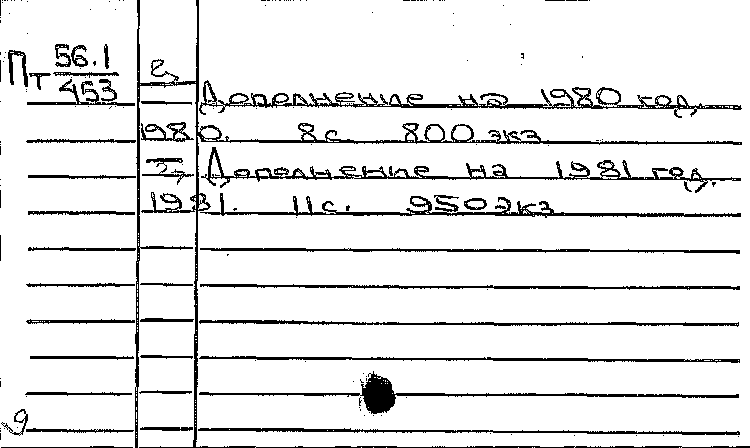 Пт 56.1/453
Дополнение на 1980 год.
1980. 8 с. 800 экз
Дополнение на 1981 год.
1981. 11 с. 950 экз
9